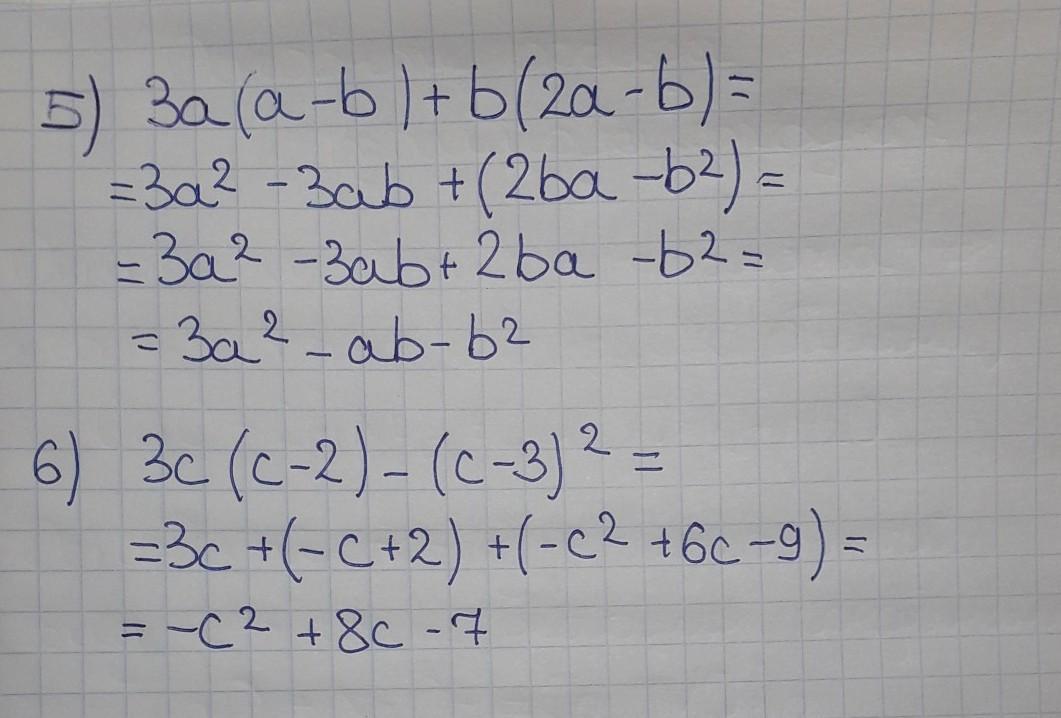 5) 3a(a-b)+b(2a-b)=
=3a² -3ab +(2ba -b²)=
=3a² -3ab+2ba -b²=
=3a² -ab-b²
6) 3c(c-2)-(c-3)²=
=3c+(-c+2)+(-c²+6c-9)=
=-c²+8c-7